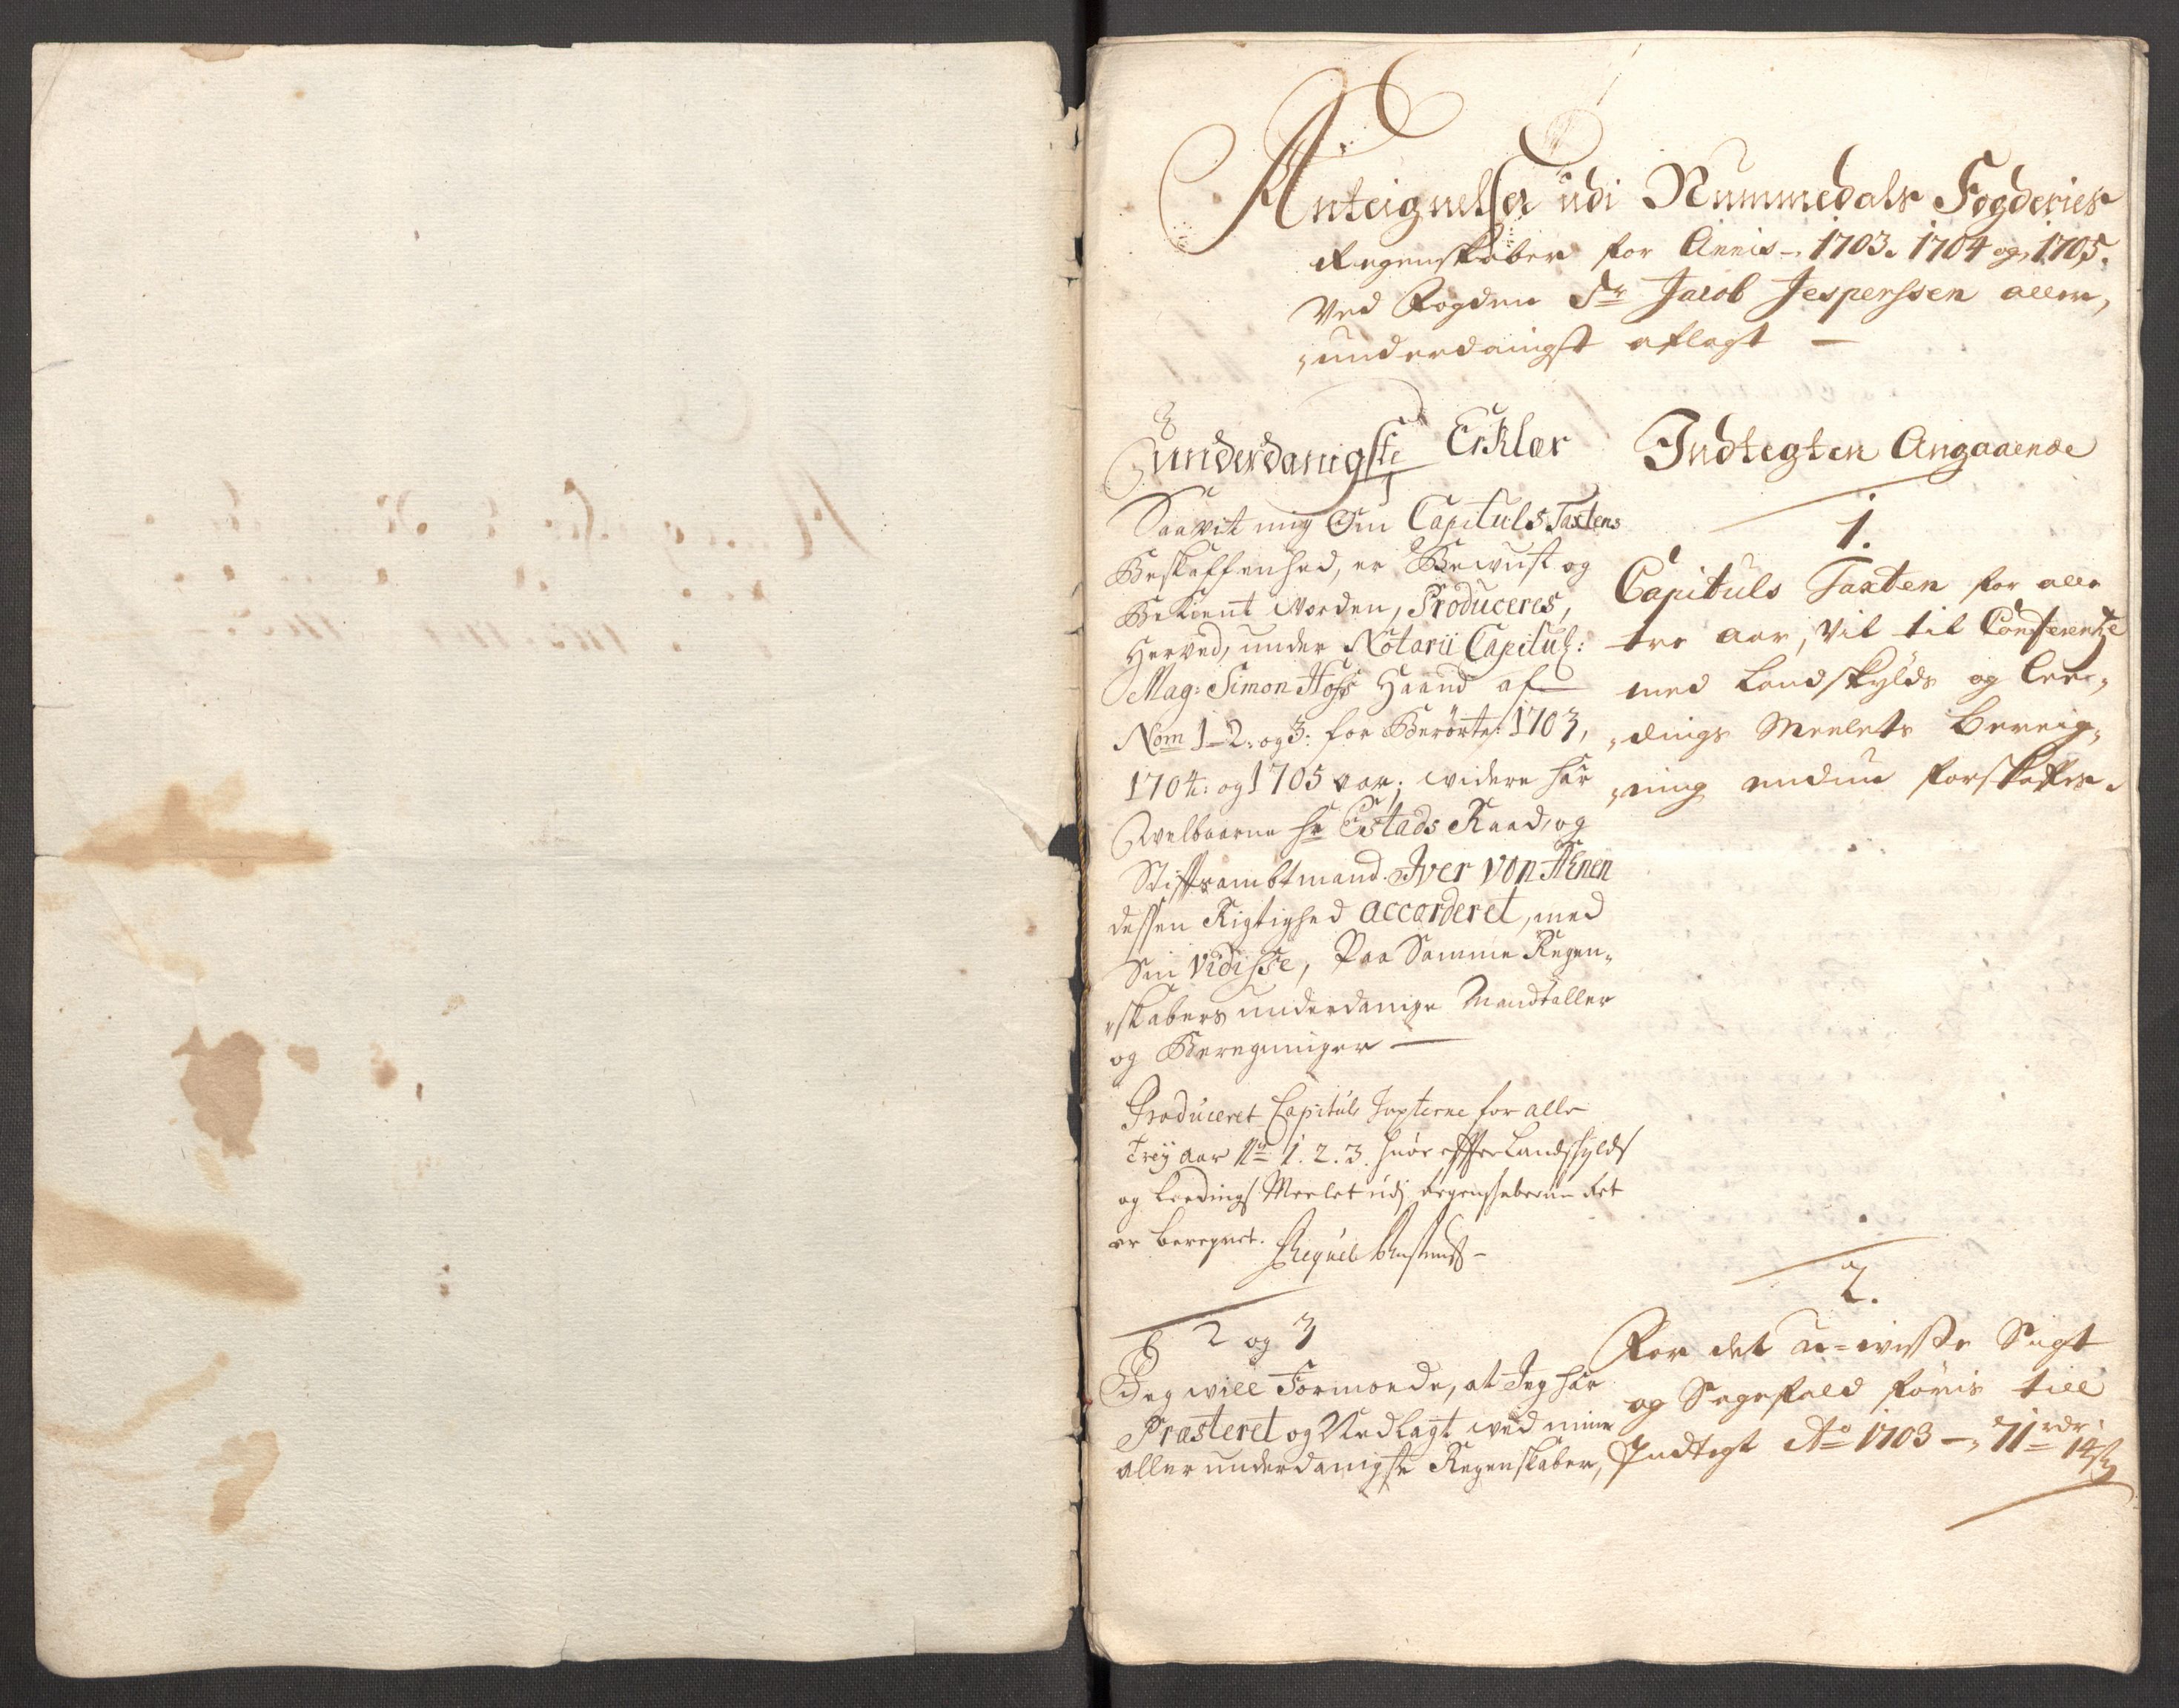 Anteignelser udi Nummedals Fogderies
Regenskaber for Annis 1703. 1704 og 1705.
Ved Fogden Sr Jacob Jesperssen aller,
,underdaingst aflagt —
Underdanigste Erklær
Saavit mig Om Capituls Taxtens
Beskaffenhed, er Bewust og
Bekient worden, Produceres,
Herved, under Notarii Capitul:
Mag: Simon Hofs Haand af
Nom 1-2: og 3: for Berørte: 1703,
1704: og 1705 aar; widere har
Welbaarne hr Etstads Raad, og
Stiftsambtmand Iver von Ahnen
dessen Rigtighed accorderet, med
Sin vidisse, Paa Samme Regen,,
,,skabers underdanige Mandtaller
og Beregninger —
Produceret Capituls Taxterne for alle
Trej aar No 1. 2. 3. huor effter Landskylds
og Leedings Meelet udj regenskaberne Ret
er beregnet.
2 og 3
Jeg will Formode, at Jeg har
Præsteret og Vedlagt wed mine
aller underdanigste Regenskaber,
Indtegten Angaaende
1.
Capituls Taxten for alle
tre aar, Vil til Conferentze
med Landskylds og Lee,,
,,dings Meelets Bereig,,
,,ning endnu forskaffes.
2.
For det u=wisse Sigt
og Sagefald føris till
Indtegt Ao 1703 — 71 rdr 14 s